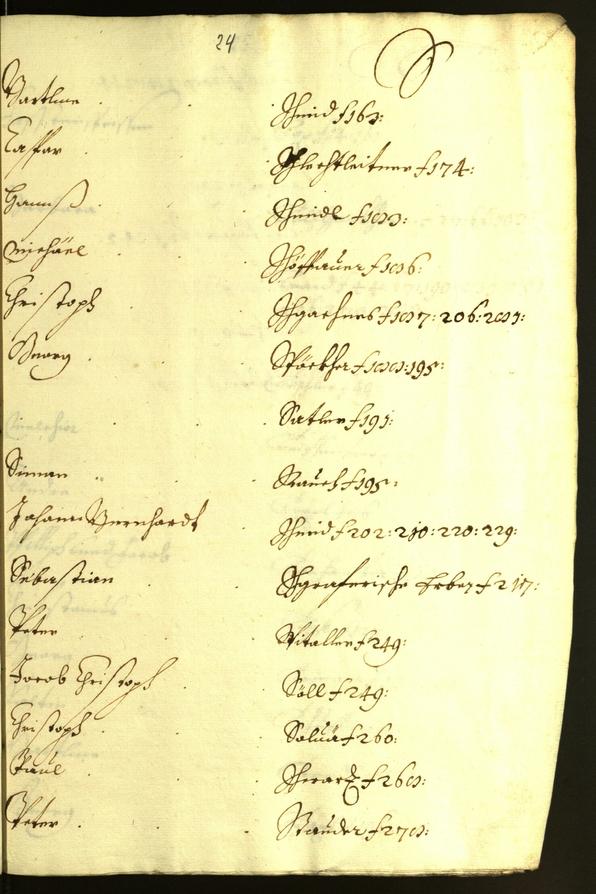 24
S
Bartlme Schmid f 163:
Caspar Schlechtleitner f 174:
Hannß Schmidl f 183:
Michäel Schöffauer f 186:
Christoph f 187: 206: 283:
Georg Stöckher f 188: 195:
Satler f 191:
Simon Rauch f 195:
Johann Bernhardt Schmid f 202: 210: 220: 229:
Sebastian Schgraferische Erben f 217:
Peter Vitaller f 249:
Jacob Christoph Söll f 249:
Christoph Soluä f 260:
Paul Schwartz f 268:
Peter Stauder f 278: